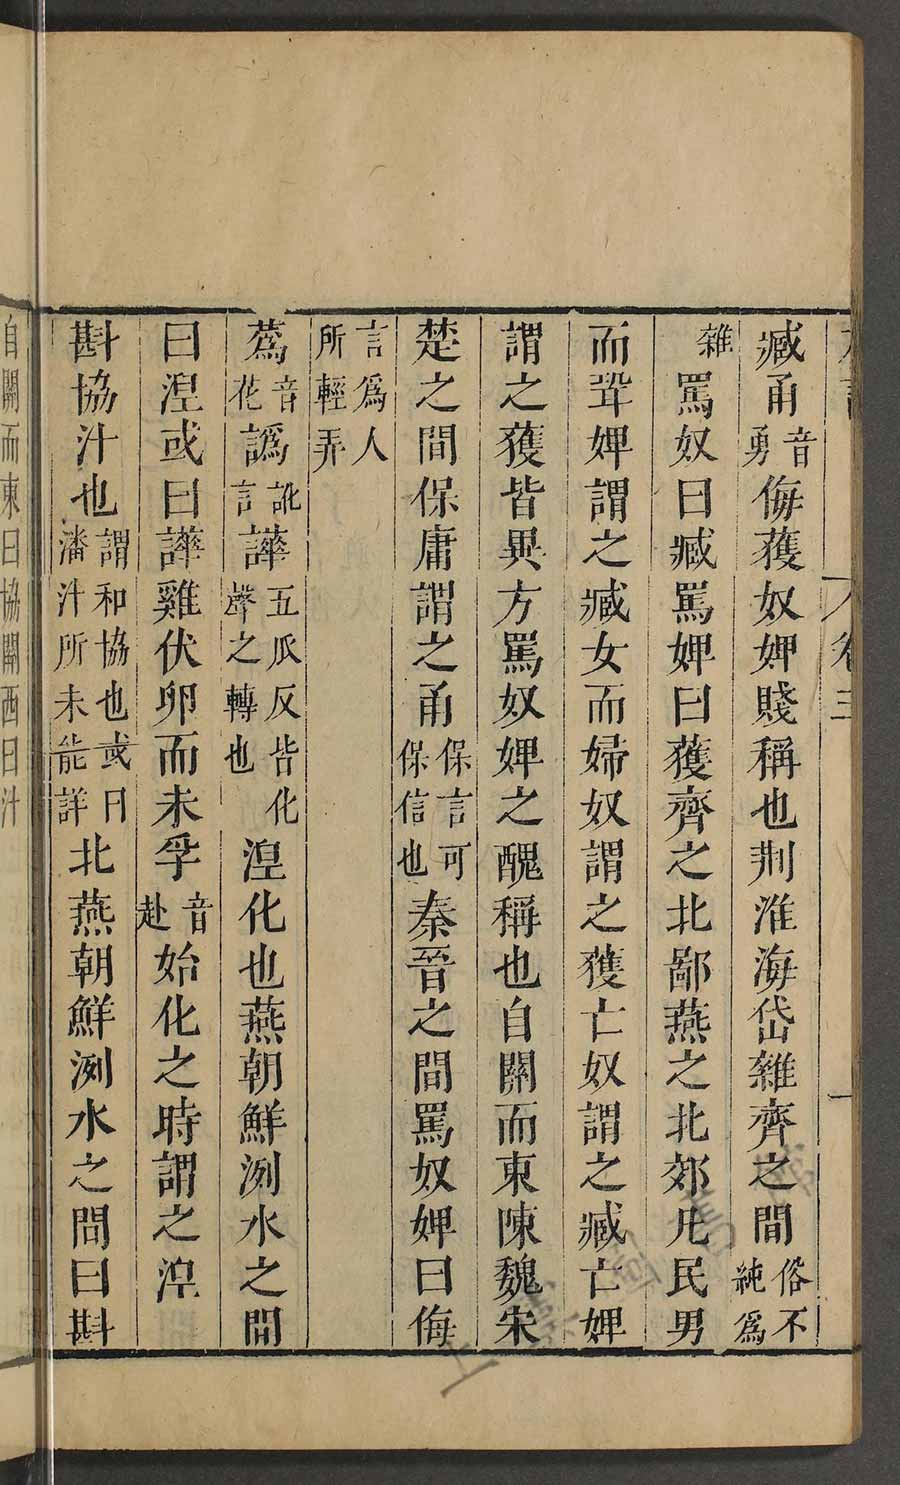 卷三 一
臧甬音勇侮獲奴婢賤稱也荆淮海岱雜齊之間俗不純爲
雜罵奴曰臧罵婢曰獲齊之北鄙燕之北郊凡民男
而聟婢謂之臧女而婦奴謂之獲亡奴謂之臧亡婢
謂之獲皆異方罵奴婢之醜稱也自關而東陳魏宋
楚之間保庸謂之甬保言可保信也秦晉之間罵奴婢曰侮
言爲人所輕弄
蔿音花譌訛言譁五瓜反皆化聲之轉也湼化也燕朝鮮洌水之間
曰湼或曰譁雞伏卵而未孚音赴始化之時謂之湼
斟協汁也謂和協也或曰潘汁所未能詳北燕朝鮮洌水之間曰斟
自關而東曰協關西曰汁